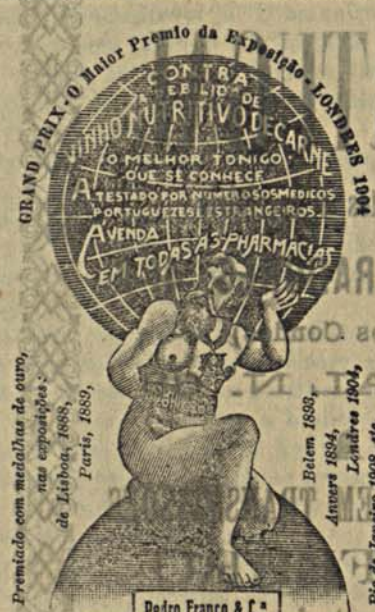 GRAND PRIX - O Maior Premio da Exposição - LONDRES 1904
CONTRA
A DEBILIDADE
VINHO NUTRITIVO DE CARNE
O MELHOR TONICO
QUE SE CONHECE
ATESTADO POR NUMEROSOS MEDICOS
PORTUGUEZES E ESTRANGEIROS
AVENDA
EM TODAS AS PHARMACIAS
Premiado com medalhas de ouro,
nas exposições:
de Lisboa, 1888,
Paris, 1889,
Belem 1893,
Anvers 1894,
Londres 1904,
Rio de Janeiro 1908, etc.
Pedro Franco & C.ª